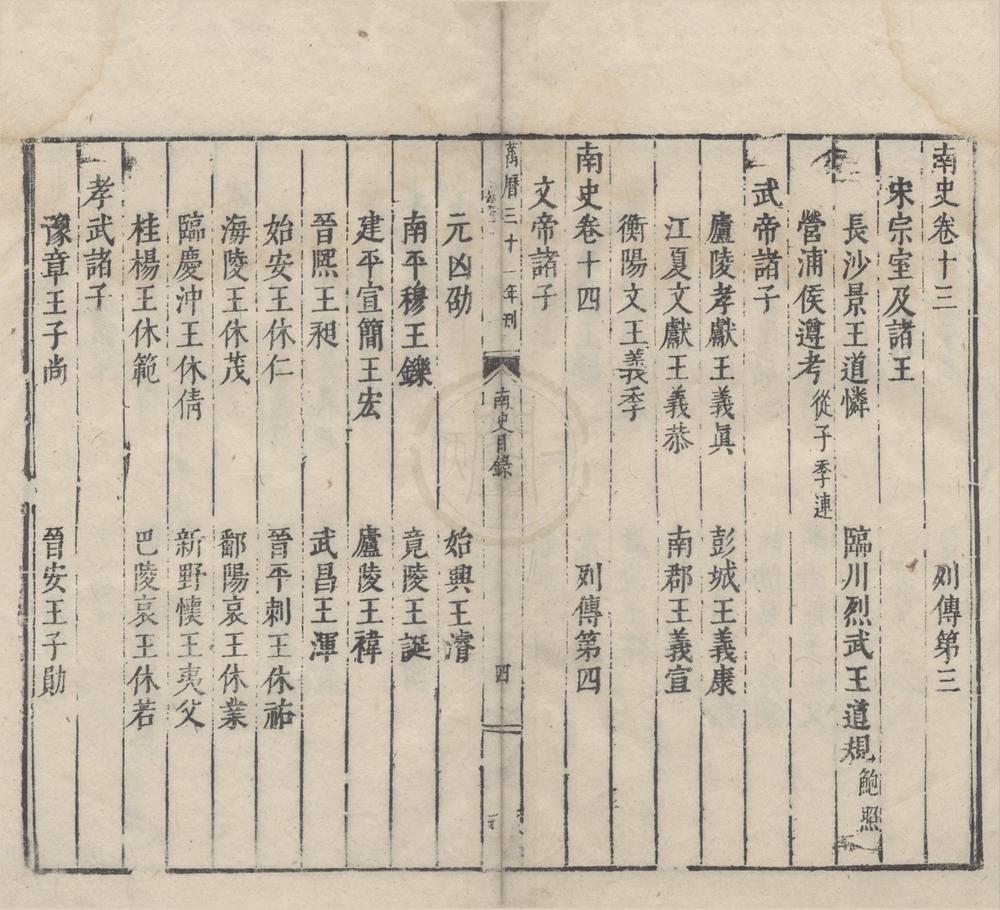 南史卷十三 列傳第三
宋宗室及諸王
長沙景王道憐 臨川烈武王道規 鮑照
營浦侯遵考 從子季連
武帝諸子
廬陵孝獻王義眞 彭城王義康
江夏文獻王義恭 南郡王義宣
衡陽文王義季
南史卷十四 列傳第四
文帝諸子
萬曆三十一年刊 南史目錄 四
元凶劭 始興王濬
南平穆王鑠 竟陵王誕
建平宣簡王宏 廬陵王禕
晉熈王昶 武昌王渾
始安王休仁 晉平刺王休祐
海陵王休茂 鄱陽哀王休業
臨慶沖王休倩 新野懷王夷父
桂楊王休範 巴陵哀王休若
孝武諸子
豫章王子尚 晉安王子勛